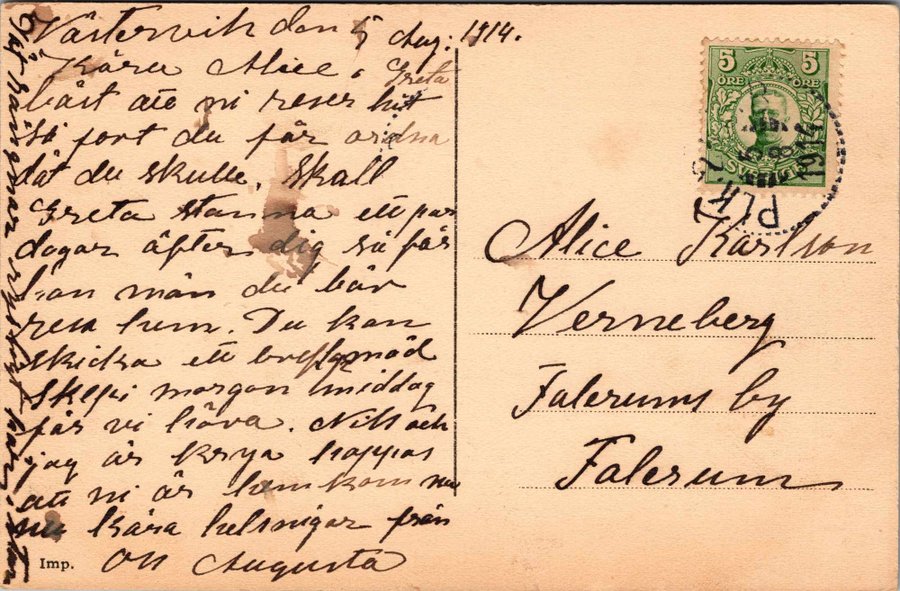 Västervik den 5 Aug: 1914.
Kära Alice. Greta
bäst att ni reser hit
så fort du får ordna
dät du skulle. Skall
Greta stanna ett par
dagar äfter dig så får
hon män du bör
resa hem. Du kan
skicka ett
i morgon middag
får vi höra. Nils och
jag är krya hoppas
att ni är
nu kära helsnigar från
Oss Augusta
Här
Imp.
5 5
ÖRE ÖRE
SVERIGE
PLK
5 8
1914
Alice Karlson
Verneberg
Falerums by
Falerum